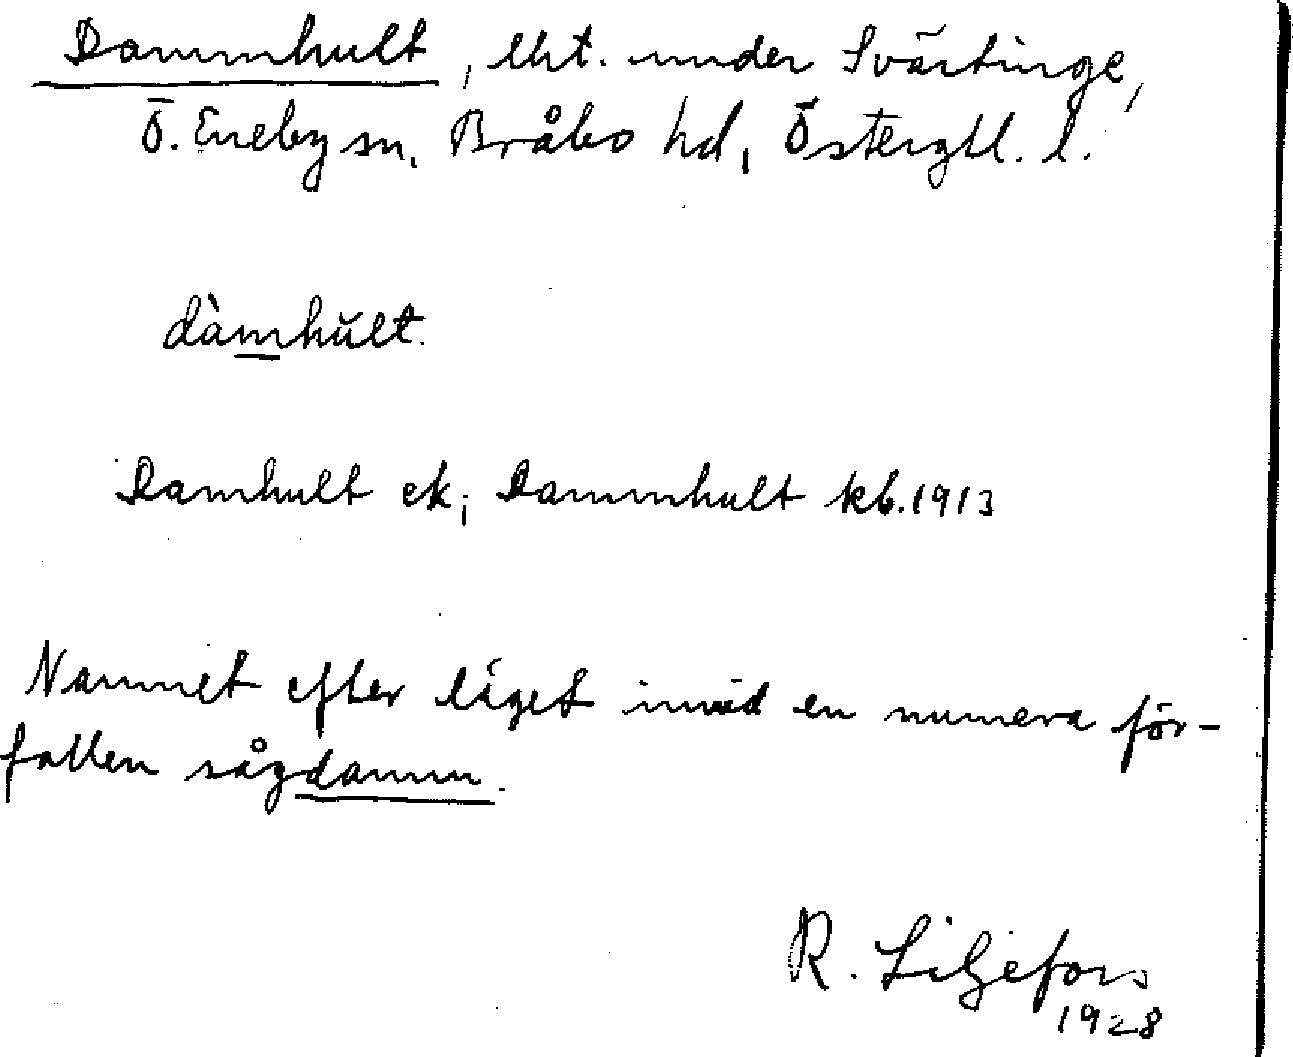 Dammhult, lht. under Svärtinge,
Ö. Eneby sn, Bråbo hd, Östergtl. l.
dàmhŭlt.
Damhult ek; Dammhult kb. 1913
Namnet efter läget invid en numera för-
fallen sågdamm.
R. Liljefors
1928